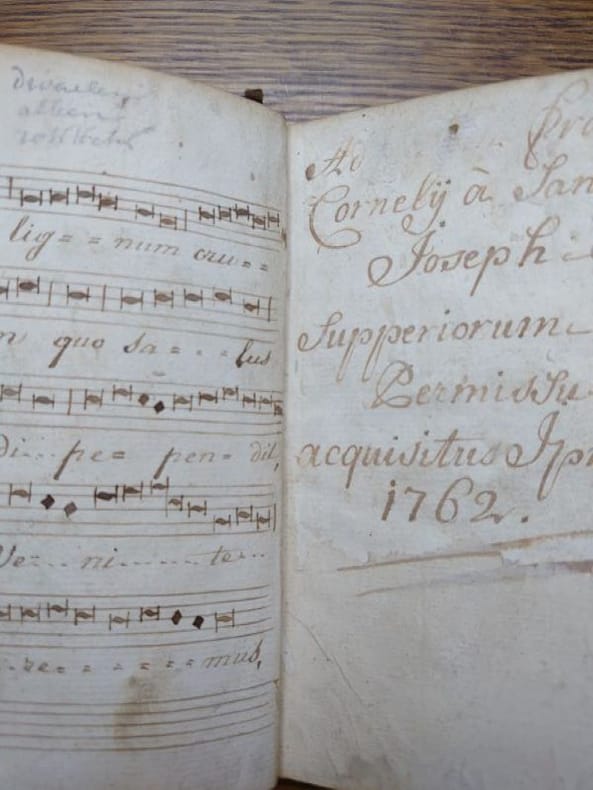 lig= = num cru= =
quo sa= - - lus
di... pe= pen= dit,
Ve- - - ni- - - - - te- - -
- re= = = = = = mus,
Ad
Cornelÿ à San
Joseph
Supperiorum
Permissu
acquisitus Ipr
1762.